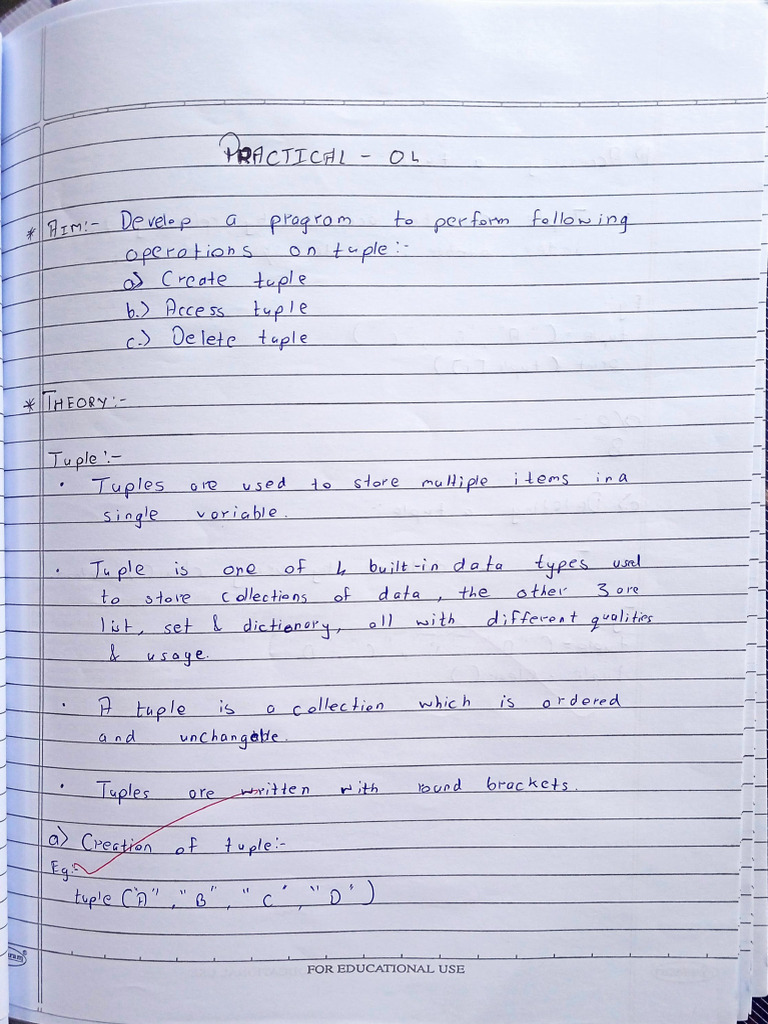 PRACTICAL - 04
* AIM:- Develop a program to perform following
operations on tuple:-
a) Create tuple
b.) Access tuple
c.) Delete tuple
* THEORY:-
Tuple:-
• Tuples are used to store multiple items in a
single variable.
• Tuple is one of 4 built-in data types used
to store collections of data, the other 3 are
list, set & dictionary, all with different qualities
& usage.
• A tuple is a collection which is ordered
and unchangable.
• Tuples are written with round brackets.
a) Creation of tuple:-
Eg:-
tuple ("A", "B", "C", "D")
FOR EDUCATIONAL USE